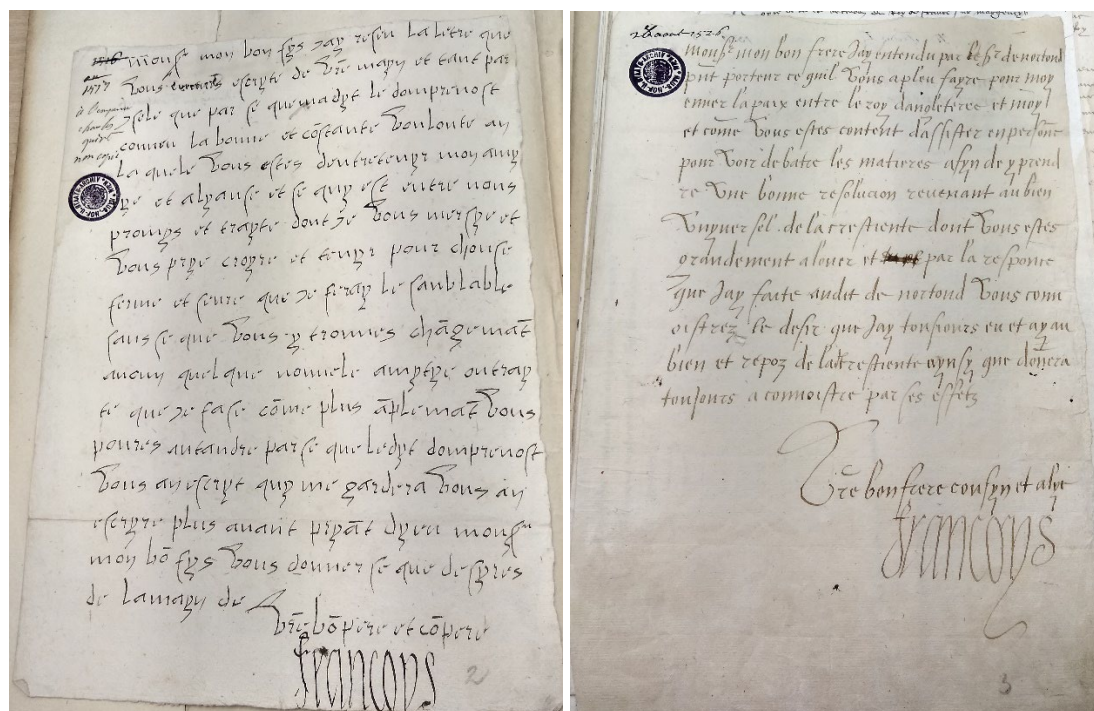 mons^r mon bon fys Jay reseu la letre que
vous escrypte de v̄re mayn et tant par
ysele que par se que madyt le domprenost
conneu la bonne et cōstante voulonte an
la quele vous estes dentretenyr mon amy
tye et alyanse et se quy est entre nous
promys et trayte dont Je vous mersye et
vous prye croyre et tenyr pour chouse
ferme et seure que Je feray le sanblable
sans se que vous y trouves chāgemāt
aucun quelque nouvele amytye ou tray
te que Je fase cōme plus āplemāt vous
poures antandre par se que ledyt domprenost
vous an escryt quy me gardera vous an
escryre plus avant pryāt dyeu mons^r
mon bō fys vous donner se que desyres
de la mayn de
v̄re bō pere et cōpere
francoys
2
26 aout 1526
mons^r mon bon frere Jay entendu par le s^r de nortond
pnt porteur ce quil vous a pleu fayre pour moy
enuer la paix entre le roy dangleterre et moy
et come vous estes content dassister en personne
pour voir debatre les matieres afyn de y prend
re une bonne resolucion revenant au bien
unyversel de la crestiente dont vous estes
grandement a louer et par la response
que Jay faite audit de nortond vous conn
oistrez le desir que Jay tousiours eu et ay au
bien et repoz de la crestiente aynsy que donera
tousjours a connoistre par ses effetz
V̄re bon frere cousyn et alye
francoys
3